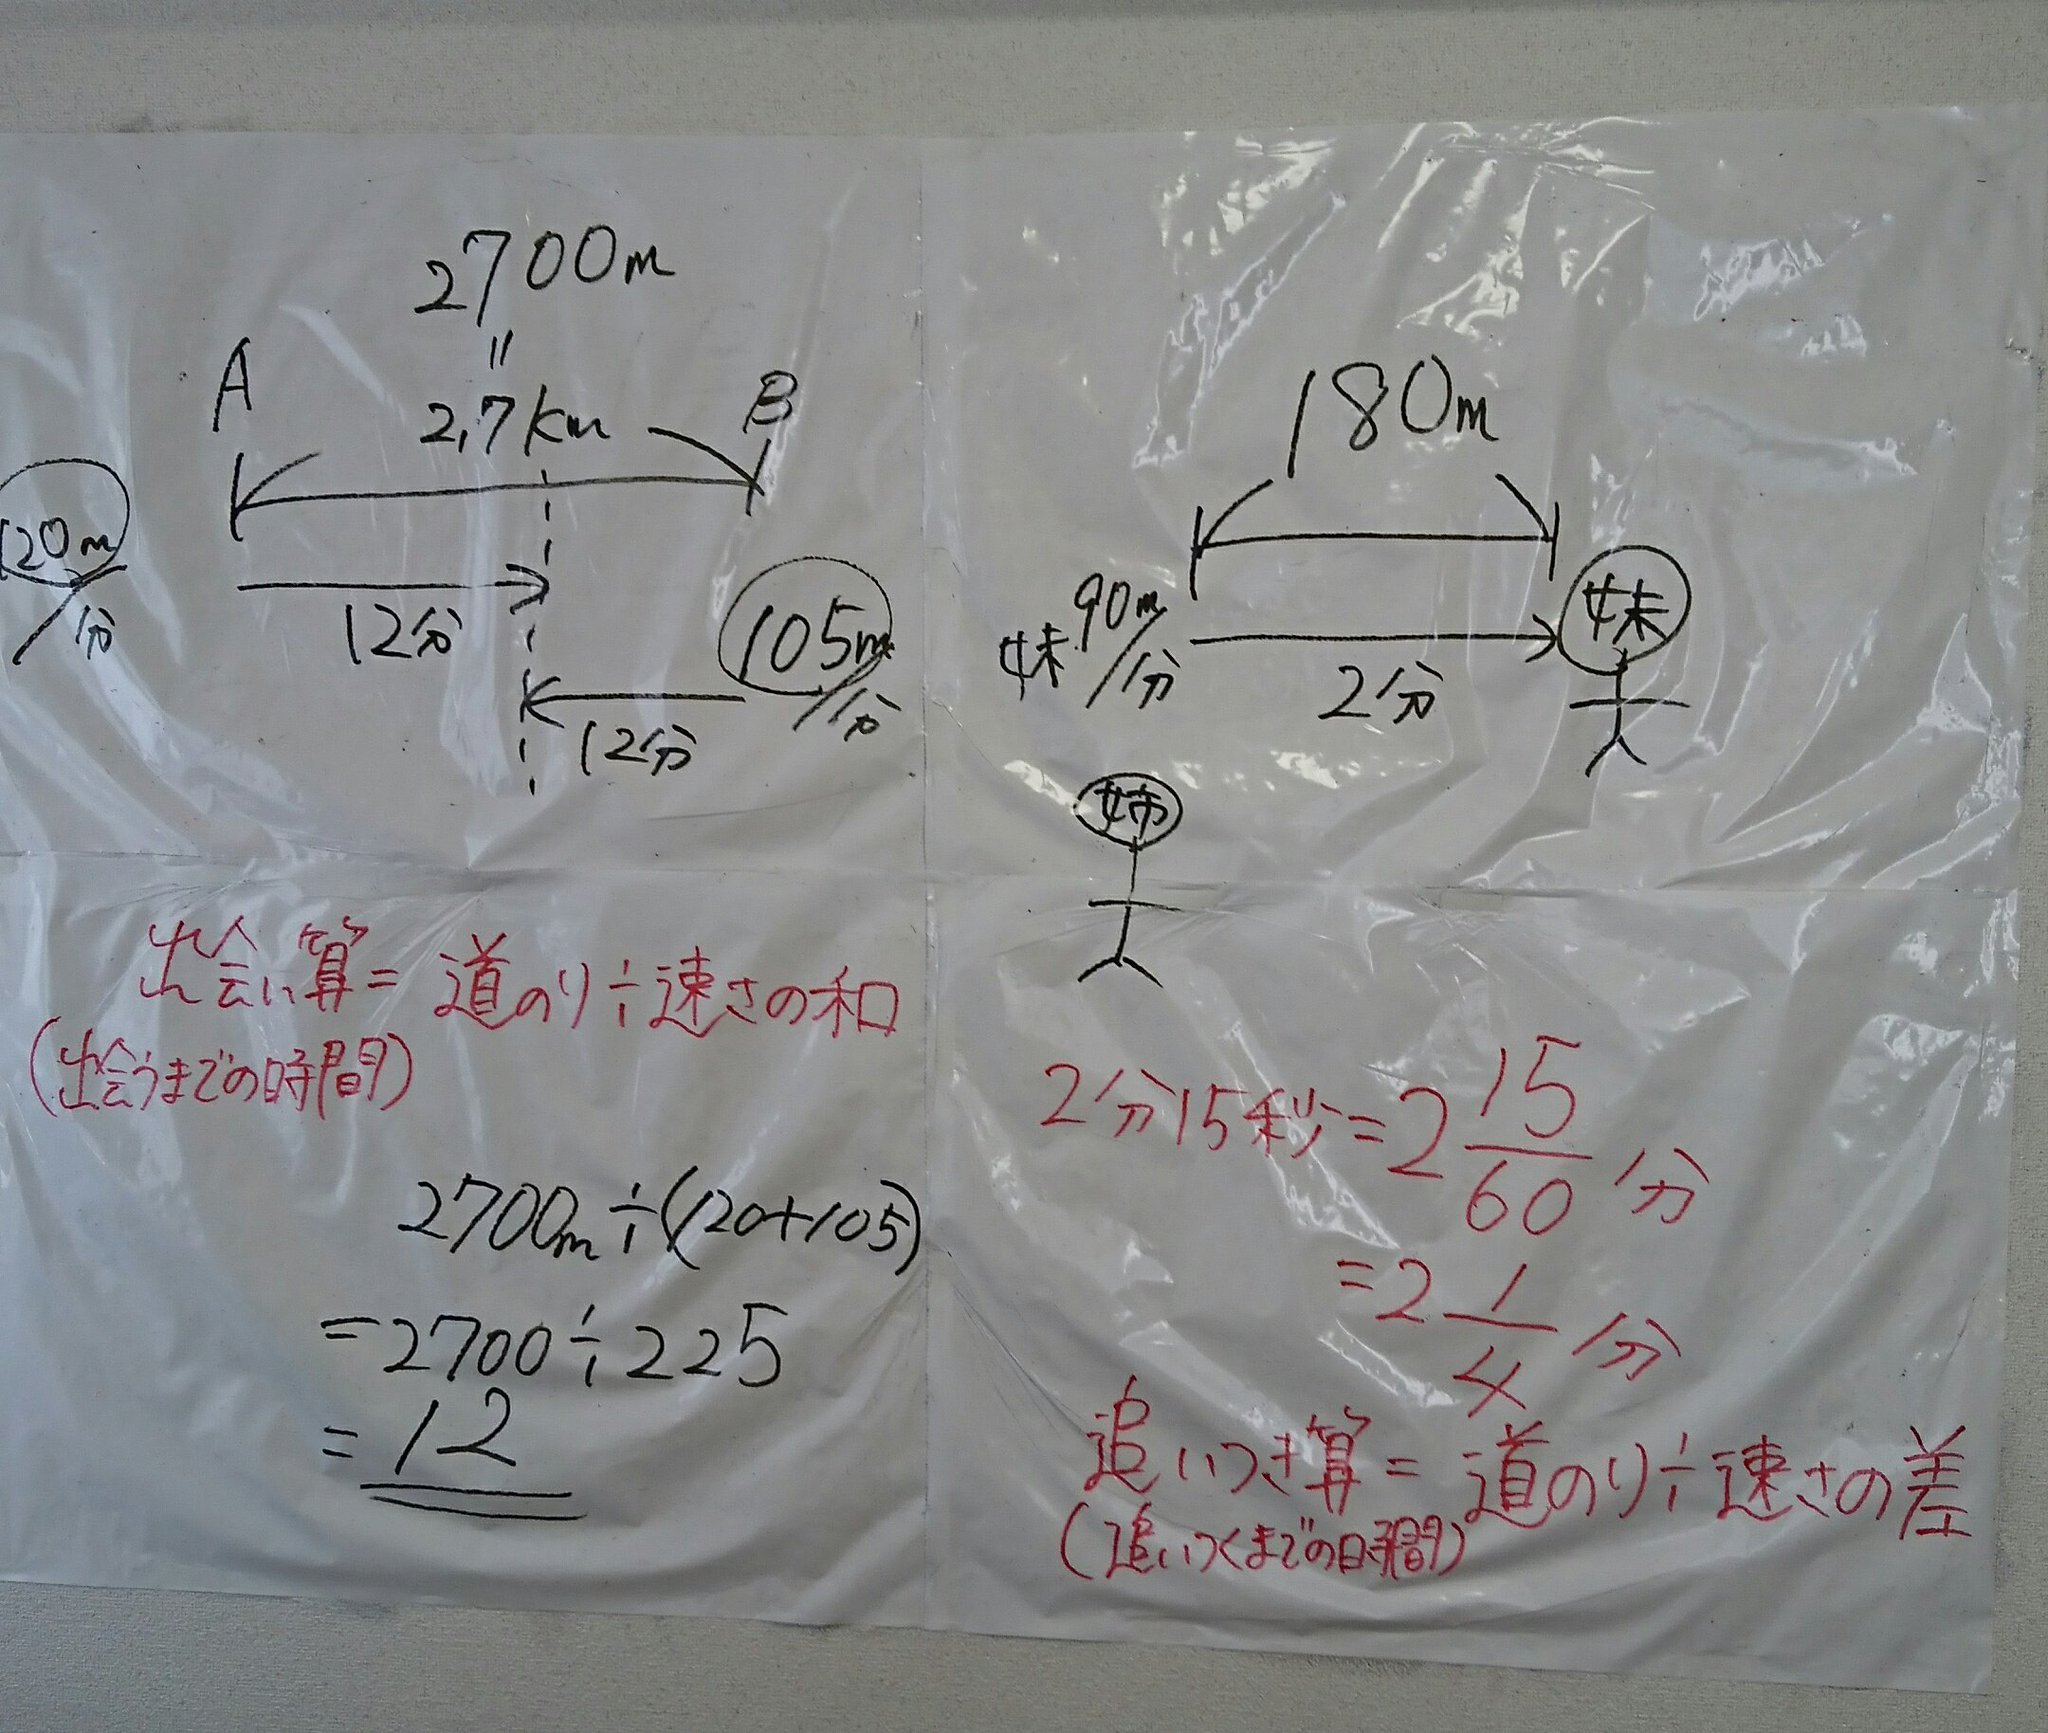 2700m
〃
2.7km
A
B
120m/分
12分
105m/分
12分
出会い算=道のり÷速さの和
(出会うまでの時間)
2700m÷(120+105)
=2700÷225
=12
180m
妹 90m/分
2分
妹
姉
2分15秒=2 15/60 分
=2 1/4 分
追いつき算=道のり÷速さの差
(追いつくまでの時間)